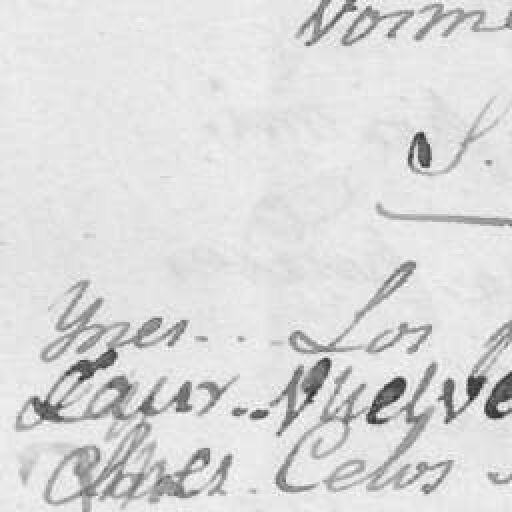 Norm
S.
Ynes... Los
Laur.. Vuelve
Ynes. Celos